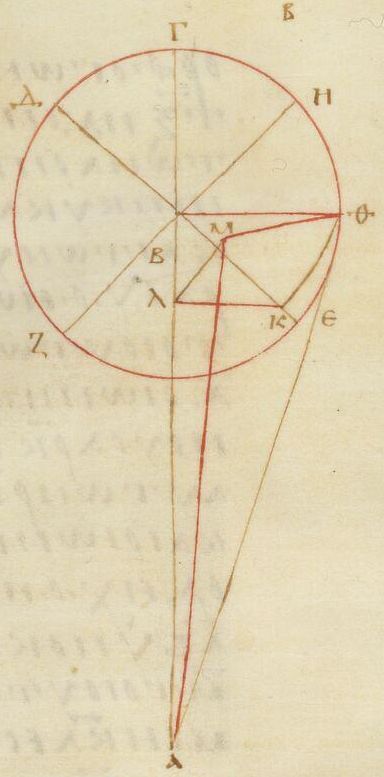 Β
Γ
Δ
Η
Θ
Μ
Β
Λ
Κ
Ε
Ζ
Α